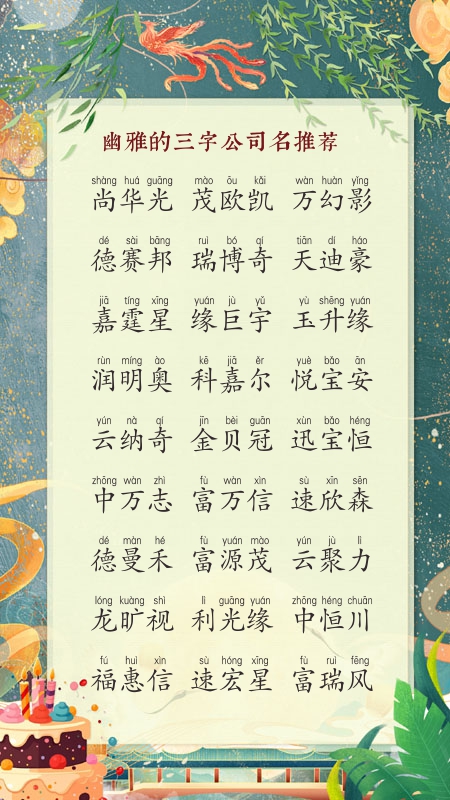 幽雅的三字公司名推荐
shàng huá guāng mào ōu kǎi wàn huàn yǐng
尚华光 茂欧凯 万幻影
dé sài bāng ruì bó qí tiān dí háo
德赛邦 瑞博奇 天迪豪
jiā tíng xīng yuán jù yǔ yù shēng yuán
嘉霆星 缘巨宇 玉升缘
rùn míng ào kē jiā ěr yuè bǎo ān
润明奥 科嘉尔 悦宝安
yún nà qí jīn bèi guān xùn bǎo héng
云纳奇 金贝冠 迅宝恒
zhōng wàn zhì fù wàn xìn sù xīn sēn
中万志 富万信 速欣森
dé màn hé fù yuán mào yún jù lì
德曼禾 富源茂 云聚力
lóng kuàng shì lì guāng yuán zhōng héng chuān
龙旷视 利光缘 中恒川
fú huì xìn sù hóng xīng fù ruì fēng
福惠信 速宏星 富瑞风